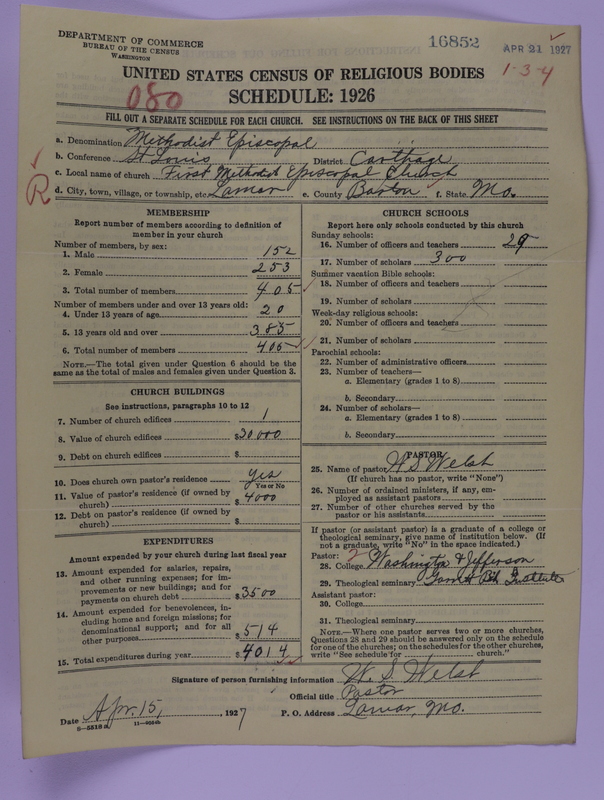 DEPARTMENT OF COMMERCE
BUREAU OF THE CENSUS
WASHINGTON
16852
APR 21 1927
1-3-4
UNITED STATES CENSUS OF RELIGIOUS BODIES
080
SCHEDULE: 1926
FILL OUT A SEPARATE SCHEDULE FOR EACH CHURCH. SEE INSTRUCTIONS ON THE BACK OF THIS SHEET
R
a. Denomination Methodist Episcopal
b. Conference St Louis District Carthage
c. Local name of church First Methodist Episcopal Church
d. City, town, village, or township, etc. Lamar e. County Barton f. State Mo.
MEMBERSHIP
Report number of members according to definition of
member in your church
Number of members, by sex:
1. Male 152
2. Female 253
3. Total number of members 405
Number of members under and over 13 years old:
4. Under 13 years of age 20
5. 13 years old and over 385
6. Total number of members 405
NOTE.—The total given under Question 6 should be the
same as the total of males and females given under Question 3.
CHURCH BUILDINGS
See instructions, paragraphs 10 to 12
7. Number of church edifices 1
8. Value of church edifices $30000
9. Debt on church edifices $
10. Does church own pastor's residence Yes
Yes or No
11. Value of pastor's residence (if owned by
church) $4000
12. Debt on pastor's residence (if owned by
church) $
EXPENDITURES
Amount expended by your church during last fiscal year
13. Amount expended for salaries, repairs,
and other running expenses; for im-
provements or new buildings; and for
payments on church debt $3500
14. Amount expended for benevolences, in-
cluding home and foreign missions; for
denominational support; and for all
other purposes $514
15. Total expenditures during year $4014
CHURCH SCHOOLS
Report here only schools conducted by this church
Sunday schools:
16. Number of officers and teachers 29
17. Number of scholars 300
Summer vacation Bible schools:
18. Number of officers and teachers
19. Number of scholars
Week-day religious schools:
20. Number of officers and teachers
21. Number of scholars
Parochial schools:
22. Number of administrative officers
23. Number of teachers—
a. Elementary (grades 1 to 8)
b. Secondary
24. Number of scholars—
a. Elementary (grades 1 to 8)
b. Secondary
PASTOR
25. Name of pastor W S Welsh
(If church has no pastor, write "None")
26. Number of ordained ministers, if any, em-
ployed as assistant pastors
27. Number of other churches served by the
pastor or his assistants
If pastor (or assistant pastor) is a graduate of a college or
theological seminary, give name of institution below. (If
not a graduate, write "No" in the space indicated.)
Pastor: 2
28. College Washington & Jefferson
29. Theological seminary Institute
Assistant pastor:
30. College
31. Theological seminary
NOTE.—Where one pastor serves two or more churches,
Questions 28 and 29 should be answered only on the schedule
for one of the churches; on the schedules for the other churches,
write "See schedule for church."
Signature of person furnishing information W. S. Welsh
Official title Pastor
Date Apr. 15, , 1927 P. O. Address Lamar, Mo.